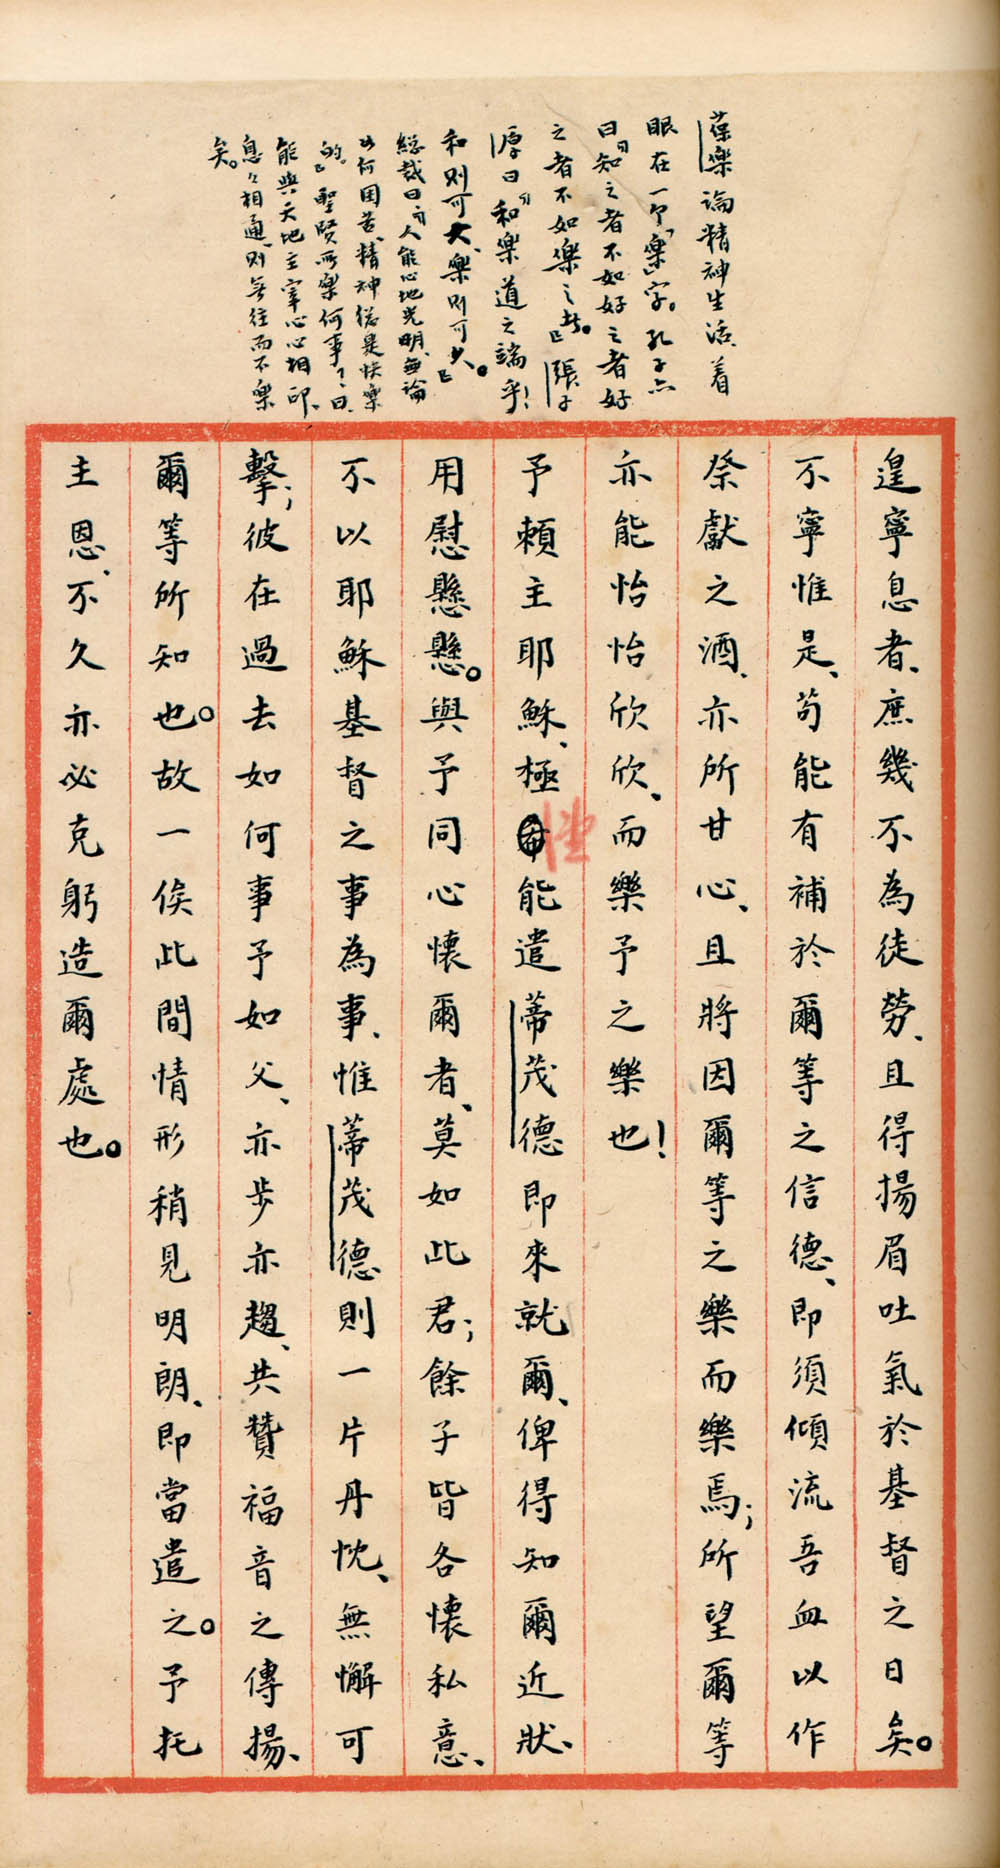 葆樂論精神生活、着
眼在一個「樂」字。孔子亦
曰「知之者不如好之者好
之者不如樂之者。」張子
厚曰「和樂道之端乎！
和則可大、樂則可久。」
總裁曰「人能心地光明、無論
如何困苦、精神總是快樂
的。」聖賢所樂何事？曰、
能與天地主宰心心相印、
息息相通、則無往而不樂
矣。
遑寧息者、庶幾不為徒勞、且得揚眉吐氣於基督之日矣。
不寧惟是、苟能有補於爾等之信德、即須傾流吾血以作
祭獻之酒、亦所甘心、且將因爾等之樂而樂焉；所望爾等
亦能怡怡欣欣、而樂予之樂也！
予賴主耶穌、極盼能遣蒂茂德即來就爾、俾得知爾近狀、
用慰懸懸。與予同心懷爾者、莫如此君；餘子皆各懷私意、
不以耶穌基督之事為事、惟蒂茂德則一片丹忱、無懈可
擊；彼在過去如何事予如父、亦步亦趨、共贊福音之傳揚、
爾等所知也。故一俟此間情形稍見明朗、即當遣之。予托
主恩、不久亦必克躬造爾處也。